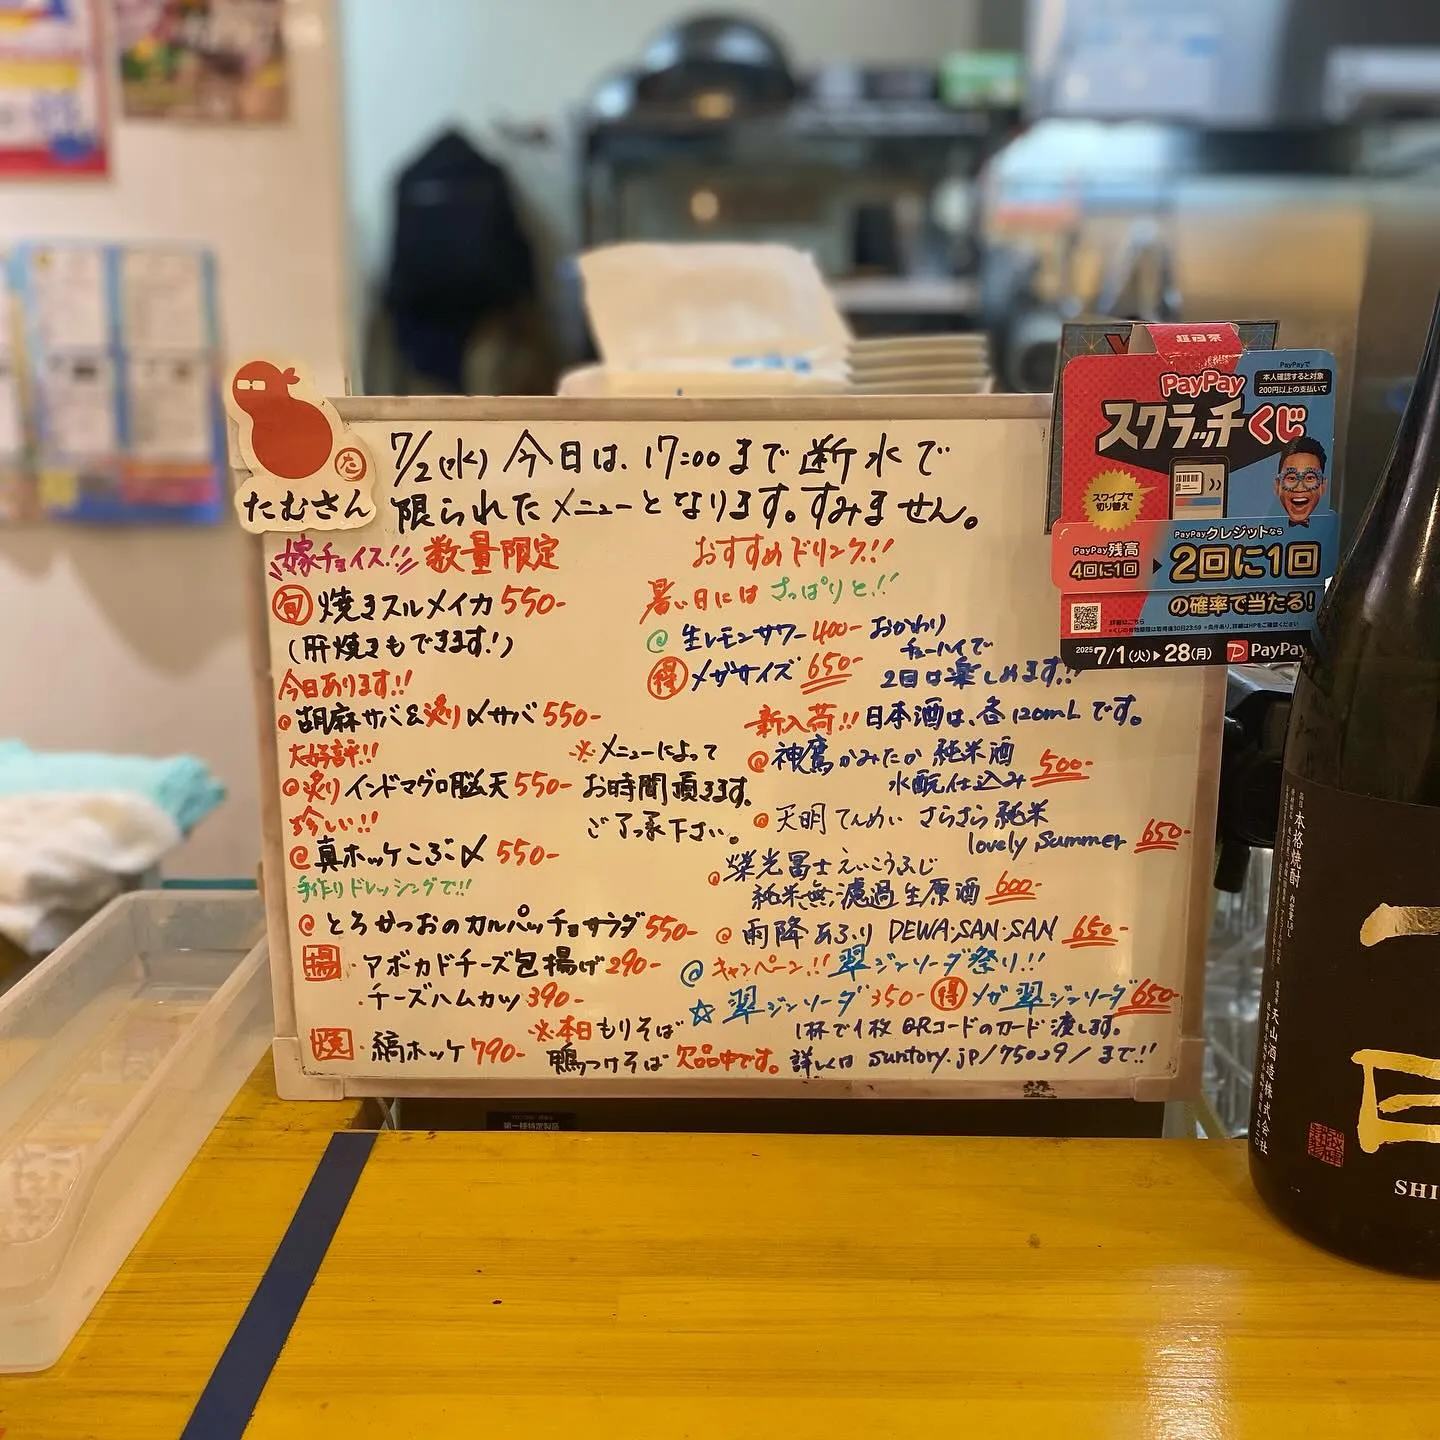 たむさん
7/2(水) 今日は、17:00まで断水で
限られたメニューとなります。すみません。
嫁チョイス!! 数量限定
旬 焼きスルメイカ 550-
(肝焼きもできます!)
今日あります!!
@胡麻サバ&炙り〆サバ 550-
大好評!!
@炙りインドマグロ脳天 550-
珍しい!!
@真ホッケこぶ〆 550-
手作りドレッシングで!!
@とろかつおのカルパッチョサラダ 550-
揚・アボカドチーズ包揚げ 290-
・チーズハムカツ 390-
焼・縞ホッケ 790-
※メニューによって
お時間頂きます。
ご了承下さい。
※本日もりそば
鴨つけそば欠品中です。
おすすめドリンク!!
暑い日にはさっぱりと!!
@生レモンサワー 400-
得メガサイズ 650-
おかわり
チューハイで
2回は楽しめます!!
新入荷!! 日本酒は、各120mLです。
@神鷹かみたか 純米酒
水酛仕込み 500-
@天明てんめい さらさら純米
lovely summer 650-
@榮光冨士えいこうふじ
純米無濾過生原酒 600-
@雨降あふり DEWA・SAN・SAN 650-
@キャンペーン!! 翠ジンソーダ祭り!!
☆翠ジンソーダ 350- 得メガ翠ジンソーダ 650-
1杯で1枚QRコードのカード渡します。
詳しくは suntory.jp/75029/ まで!!
超百祭
PayPay
スクラッチくじ
PayPayで
本人確認すると対象
200円以上の支払いで
スワイプで
切り替え
PayPay残高
4回に1回
PayPayクレジットなら
2回に1回
の確率で当たる!
詳細はこちら
2025 7/1(火)▶28(月) PayPay
本格焼酎
天山酒造株式会社
SHI
第一種特定製品